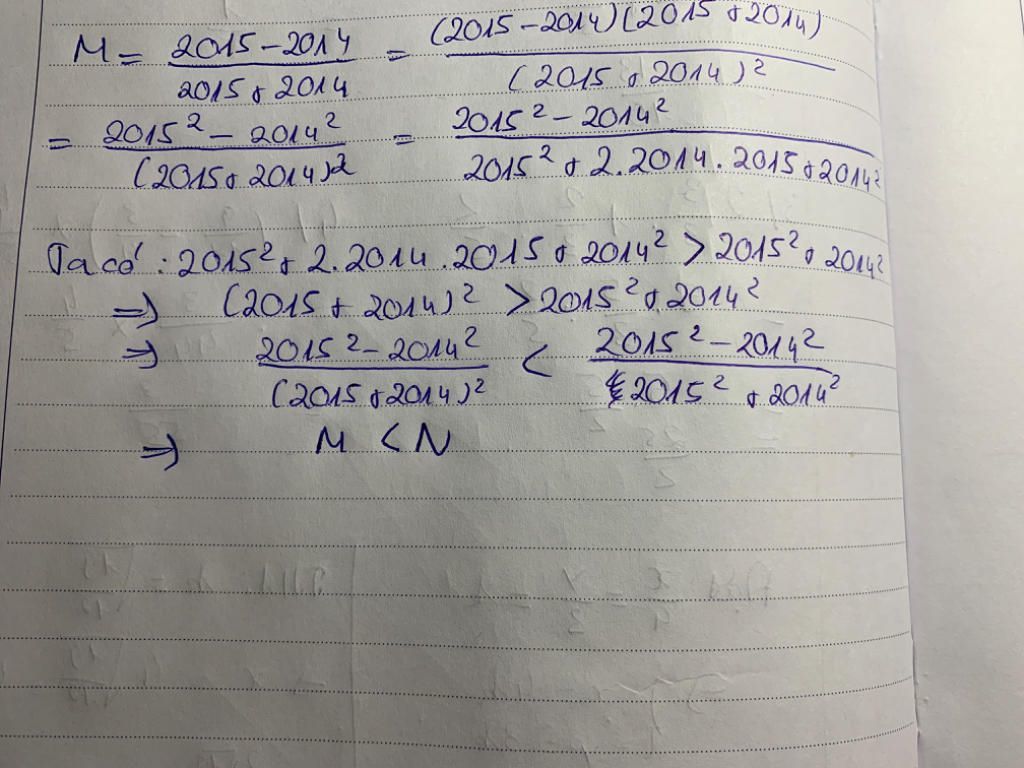 M = (2015 - 2014)/(2015 + 2014) = (2015 - 2014)(2015 + 2014)/(2015 + 2014)²
= (2015² - 2014²)/(2015 + 2014)² = (2015² - 2014²)/(2015² + 2.2014.2015 + 2014²)
Ta có : 2015² + 2.2014.2015 + 2014² > 2015² + 2014²
⇒ (2015 + 2014)² > 2015² + 2014²
⇒ (2015² - 2014²)/(2015 + 2014)² < (2015² - 2014²)/(2015² + 2014²)
⇒ M < N